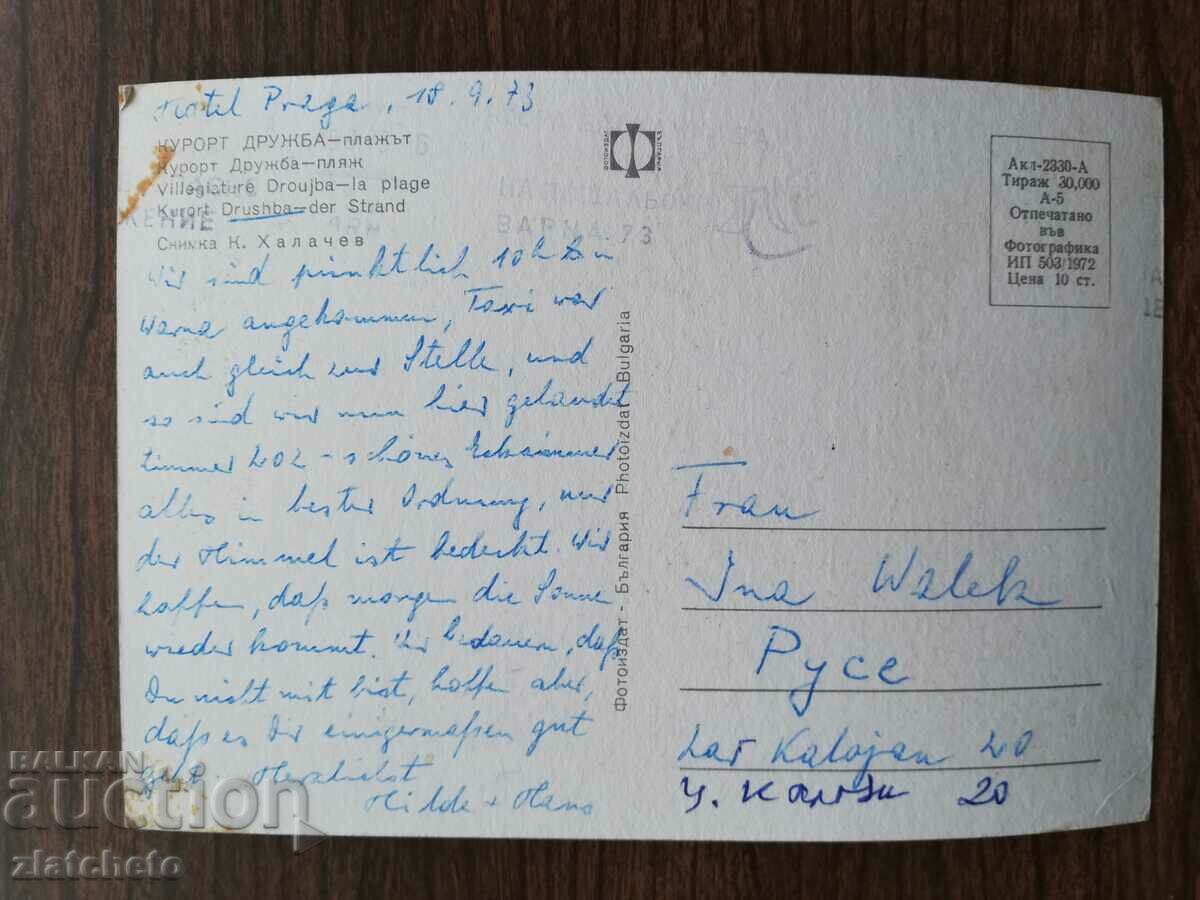 Hotel Praga, 18.9.73
КУРОРТ ДРУЖБА—плажът
Курорт Дружба—пляж
Villegiature Droujba—la plage
Kurort Drushba—der Strand
Снимка К. Халачев
Wir sind pünktlich 10h in
Warna angekommen, Taxi war
auch gleich zur Stelle, und
so sind wir nun hier gelandet
Zimmer 202 - schönes Eckzimmer
alles in bester Ordnung, nur
der Himmel ist bedeckt. Wir
hoffen, daß morgen die Sonne
wieder kommt. Wir bedauern, daß
Du nicht mit bist, hoffen aber,
daß es Dir einigermaßen gut
geht. Herzlichst
Hilde + Hans
ФОТОИЗДАТ
ВАРНА 73
Фотоиздат - България Photoizdat Bulgaria
Акл-2330-А
Тираж 30,000
А-5
Отпечатано
във
Фотографика
ИП 503/1972
Цена 10 ст.
Frau
Ina Walek
Русе
Zar Kalojan 20
Ц. Калоян 20
BALKAN
auction
zlatcheto